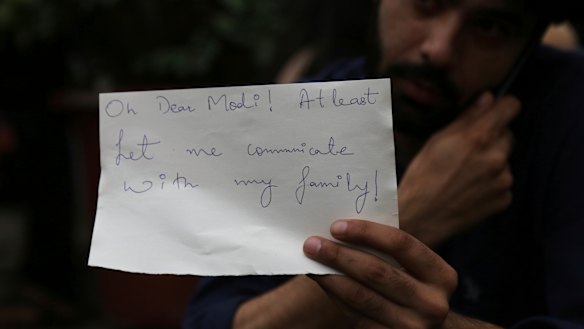 Oh Dear Modi! Atleast
Let me communicate
with my family!